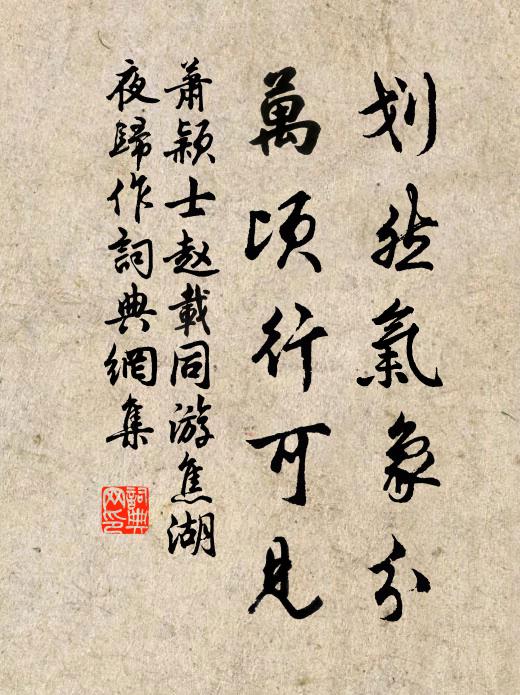 划然氣象分
萬頃行可見
蕭穎士赵載同游焦湖
夜歸作詞典網集
詞典
网印